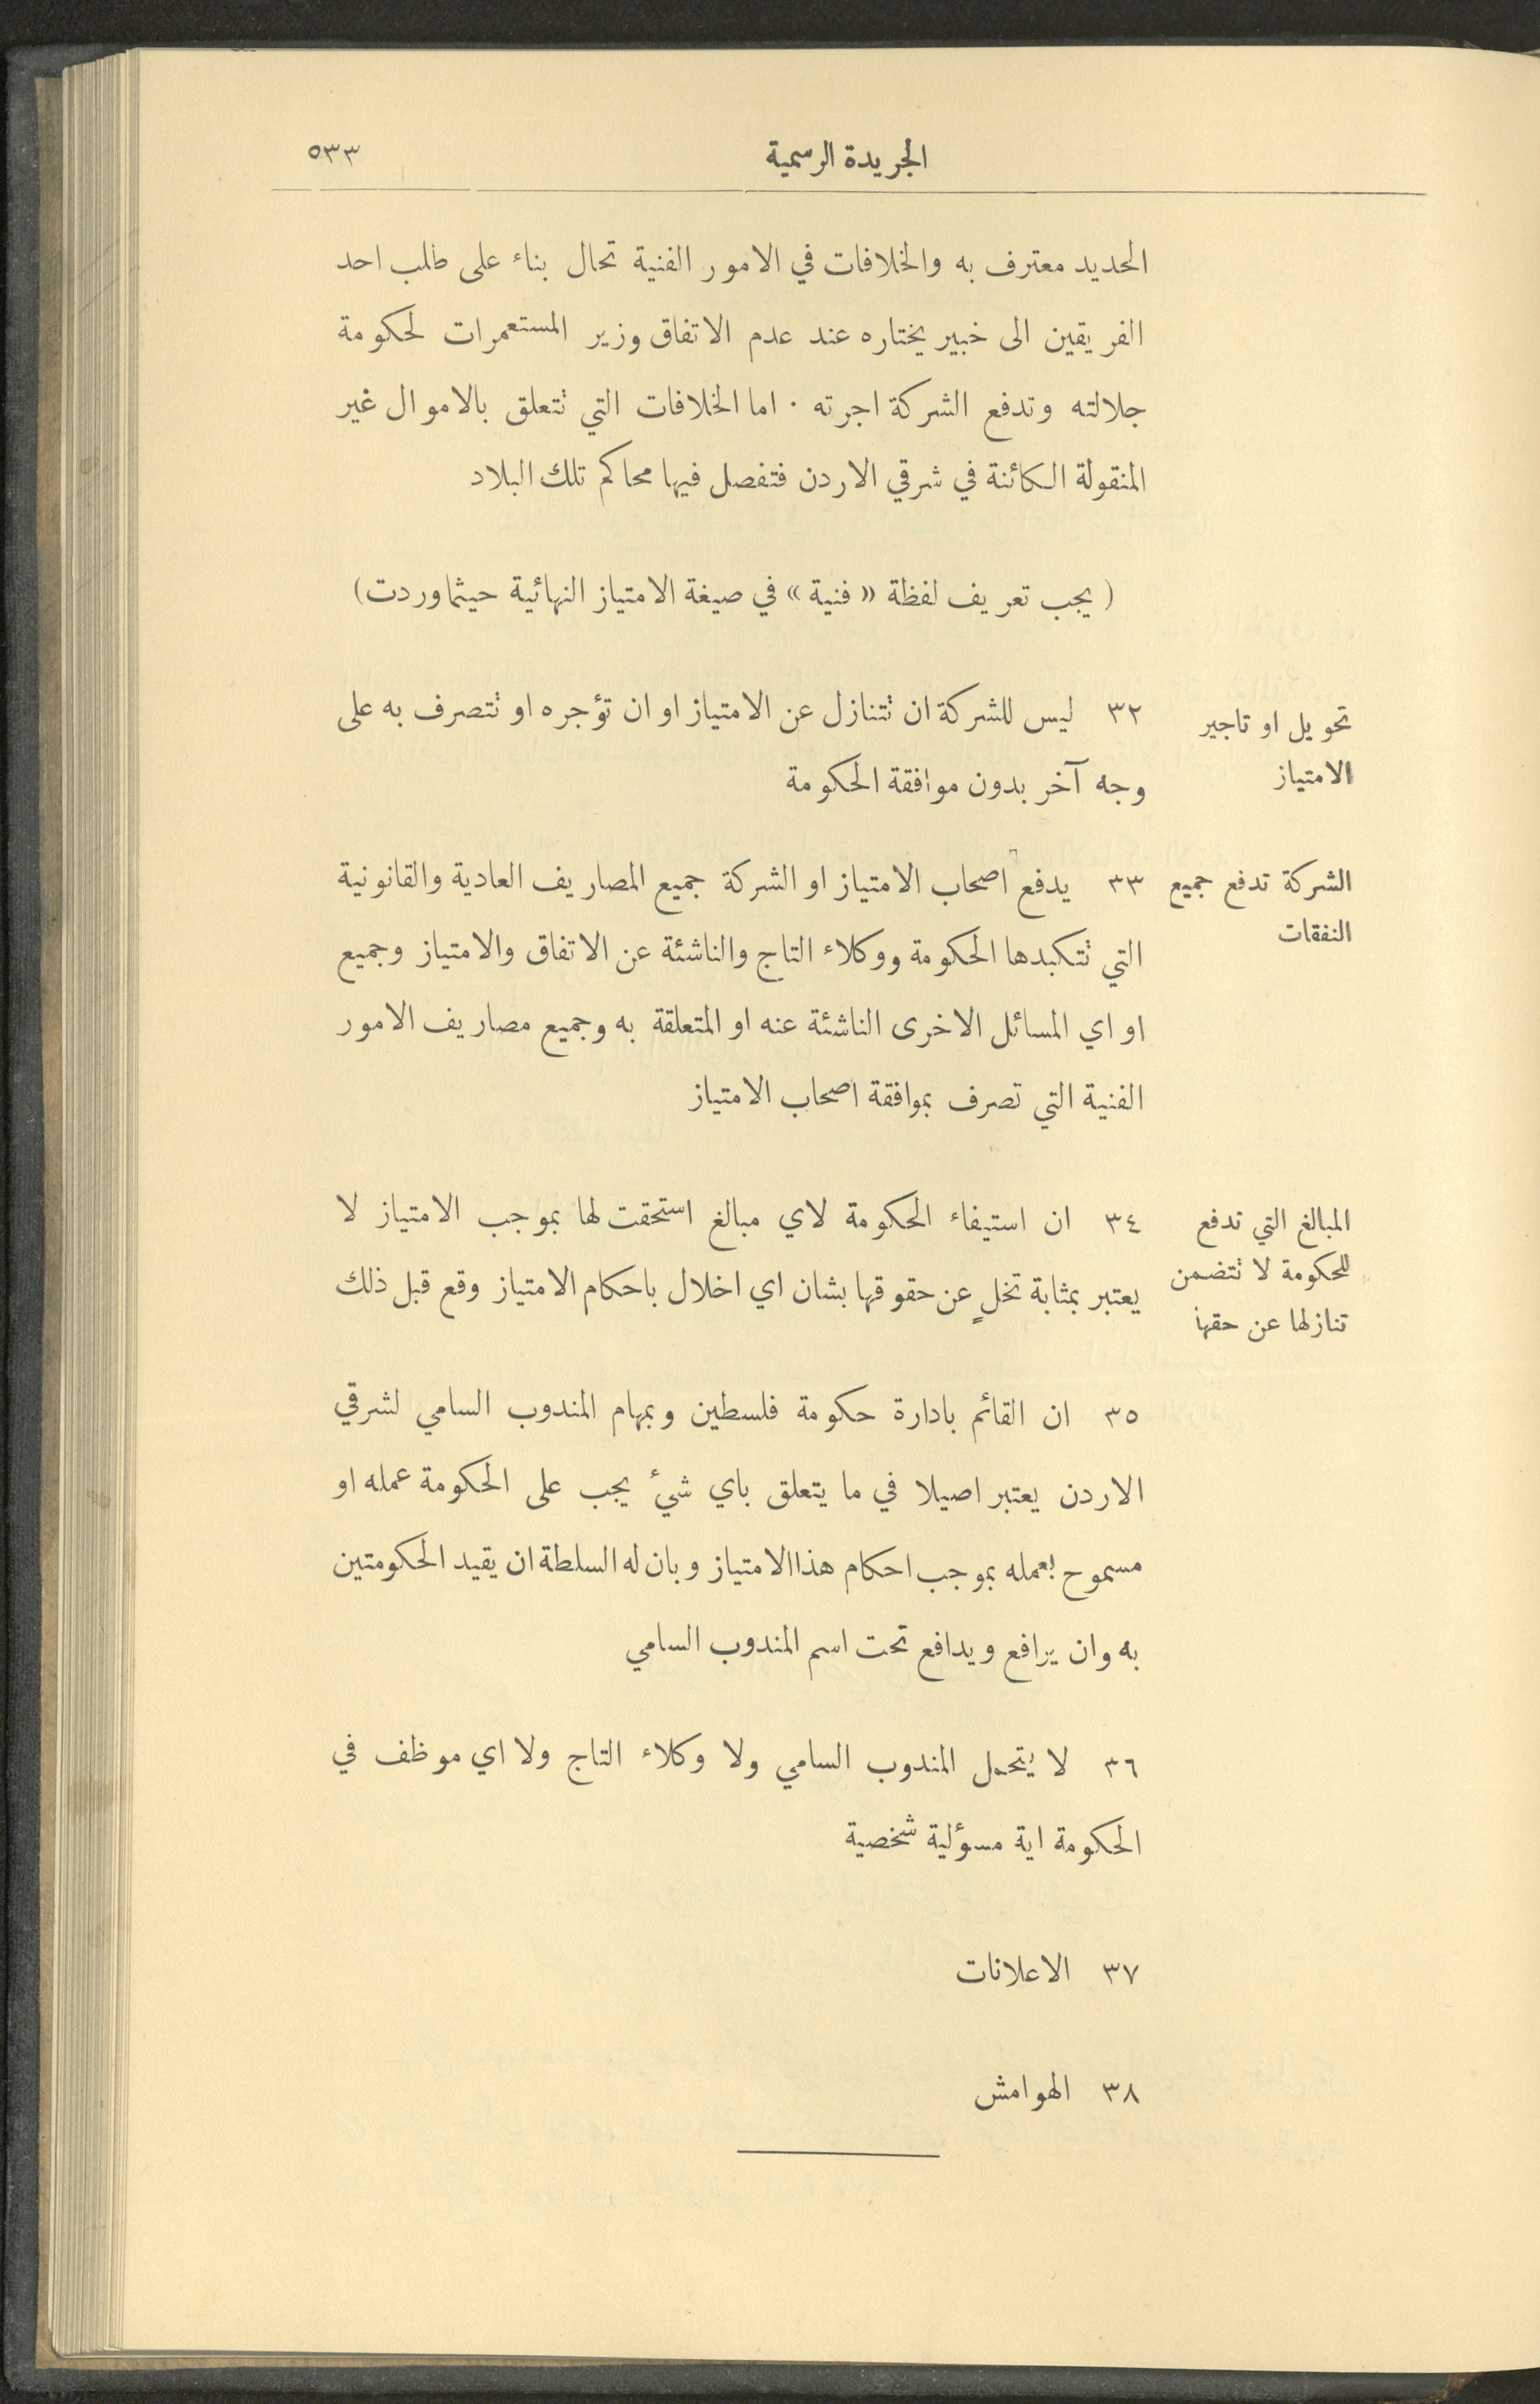 الجريدة الرسمية
٥٣٣
الحديد معترف به والخلافات في الامور الفنية تحال بناء على طلب احد
الفريقين الى خبير يختاره عند عدم الاتفاق وزير المستعمرات لحكومة
جلالته وتدفع الشركة اجرته . اما الخلافات التي تتعلق بالاموال غير
المنقولة الكائنة في شرقي الاردن فتفصل فيها محاكم تلك البلاد
( يجب تعريف لفظة « فنية » في صيغة الامتياز النهائية حيثما وردت )
تحويل او تاجير
الامتياز
٣٢ ليس للشركة ان تتنازل عن الامتياز او ان تؤجره او تتصرف به على
وجه آخر بدون موافقة الحكومة
الشركة تدفع جميع
النفقات
٣٣ يدفع اصحاب الامتياز او الشركة جميع المصاريف العادية والقانونية
التي تتكبدها الحكومة ووكلاء التاج والناشئة عن الاتفاق والامتياز وجميع
او اي المسائل الاخرى الناشئة عنه او المتعلقة به وجميع مصاريف الامور
الفنية التي تصرف بموافقة اصحاب الامتياز
المبالغ التي تدفع
للحكومة لا تتضمن
تنازلها عن حقها
٣٤ ان استيفاء الحكومة لاي مبالغ استحقت لها بموجب الامتياز لا
يعتبر بمثابة تخلٍ عن حقوقها بشان اي اخلال باحكام الامتياز وقع قبل ذلك
٣٥ ان القائم بادارة حكومة فلسطين وبمهام المندوب السامي لشرقي
الاردن يعتبر اصيلا في ما يتعلق باي شيء يجب على الحكومة عمله او
مسموح بعمله بموجب احكام هذا الامتياز وبان له السلطة ان يقيد الحكومتين
به وان يرافع ويدافع تحت اسم المندوب السامي
٣٦ لا يتحمل المندوب السامي ولا وكلاء التاج ولا اي موظف في
الحكومة اية مسؤلية شخصية
٣٧ الاعلانات
٣٨ الهوامش